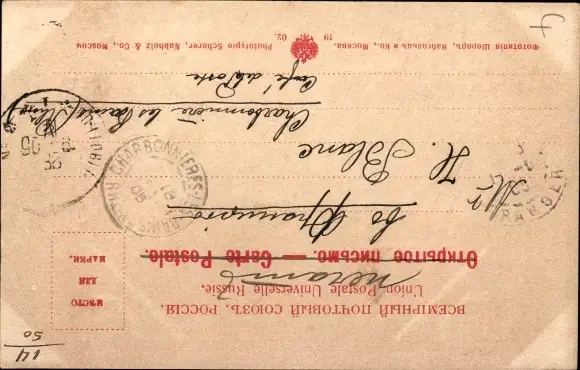 ВСЕМІРНЫЙ ПОЧТОВЫЙ СОЮЗЪ. РОССІЯ.
Union Postale Universelle Russie.
Открытое письмо. — Carte Postale.
МѢСТО
ДЛЯ
МАРКИ.
во Францію
Mr H. Blanc
Charbonnière les Bains
Café de la Poste
CHARBONNIERES-LES-BAINS
Фототипія Шереръ, Набгольцъ и Ко., Москва.
19 02.
Phototypie Scherer, Nabholz & Co., Moscou
14
50
4